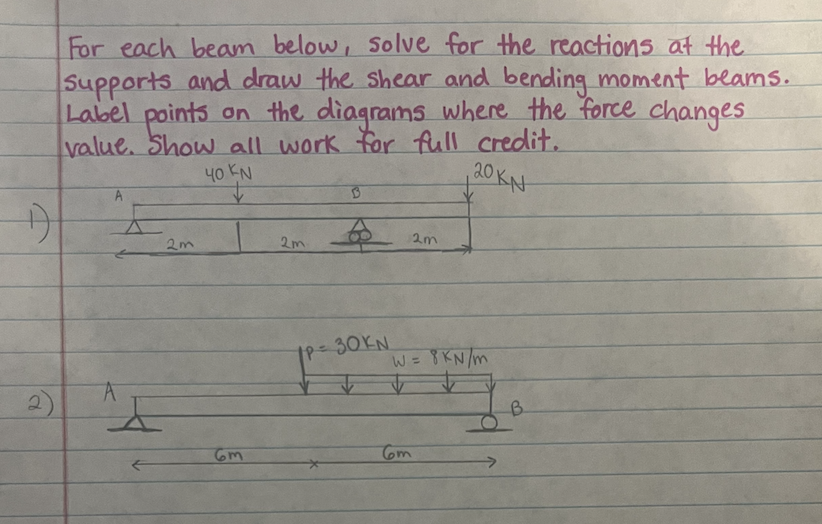 For each beam below, solve for the reactions at the
supports and draw the shear and bending moment beams.
Label points on the diagrams where the force changes
value. Show all work for full credit.
40 KN
20 KN
A
B
1)
2m
2m
2m
P = 30 KN
W = 8 KN/m
A
2)
B
6m
6m